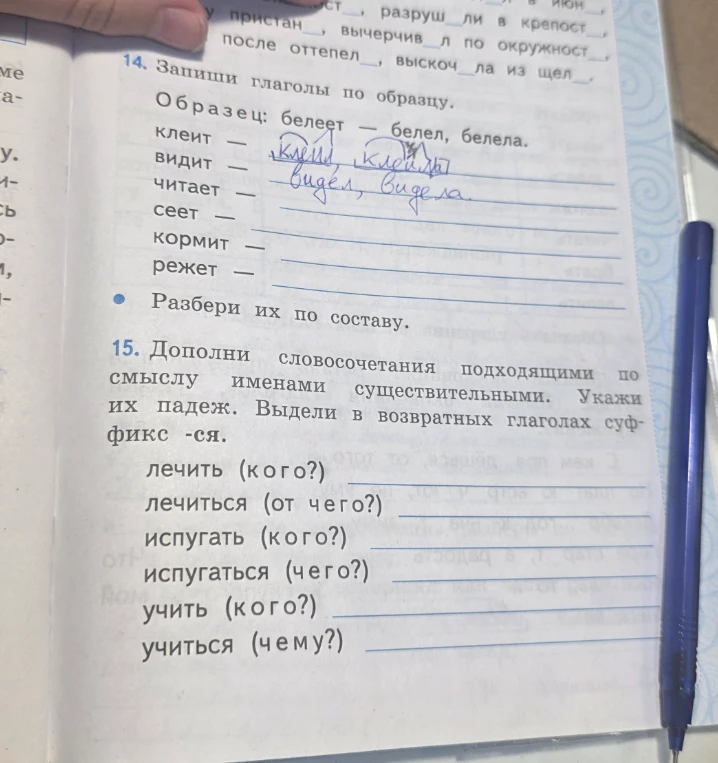 ст_, разруш_ли в крепост_,
у пристан_, вычерчив_л по окружност_,
после оттепел_, выскоч_ла из щел_.
14. Запиши глаголы по образцу.
Образец: белеет — белел, белела.
клеит — клеил, клеила
видит — видел, видела.
читает —
сеет —
кормит —
режет —
• Разбери их по составу.
15. Дополни словосочетания подходящими по
смыслу именами существительными. Укажи
их падеж. Выдели в возвратных глаголах суф-
фикс -ся.
лечить (кого?)
лечиться (от чего?)
испугать (кого?)
испугаться (чего?)
учить (кого?)
учиться (чему?)